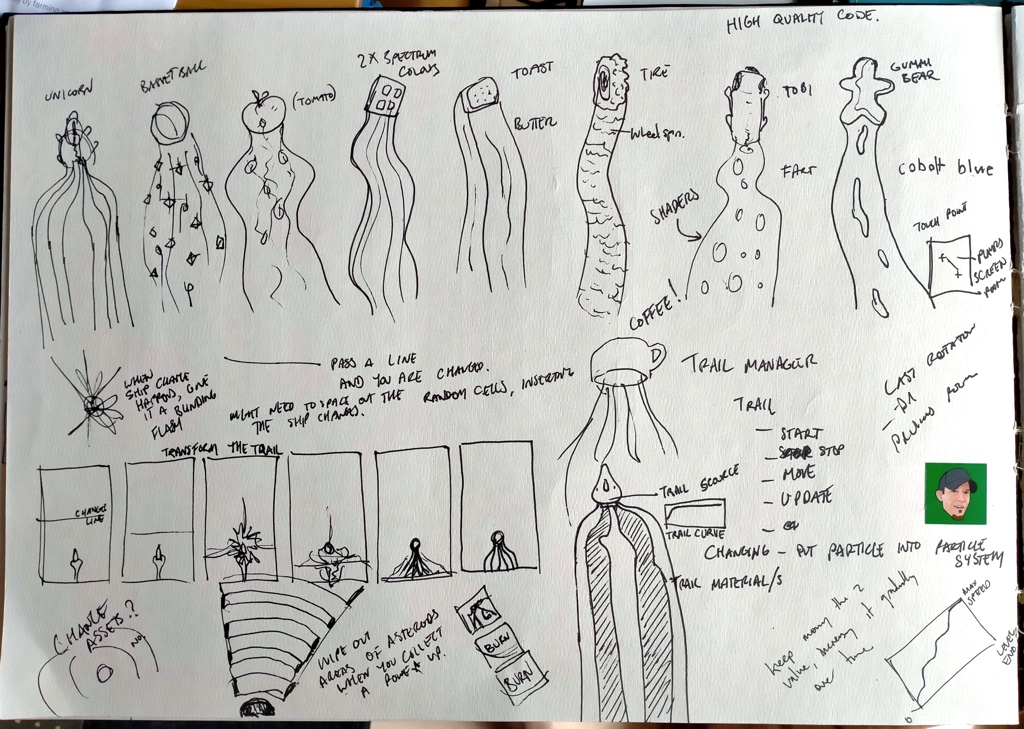 HIGH QUALITY CODE.
UNICORN
BASKETBALL
(TOMATO)
2X SPECTRUM
COLOURS
TOAST
BUTTER
TIRE
Wheel spin.
TOBI
FART
SHADERS
GUMMI
BEAR
cobalt blue
TOUCH POINT
SCREEN
ROOM
COFFEE!
PASS A LINE
AND YOU ARE CHANGED.
MIGHT NEED TO SPACE OUT THE RANDOM CELLS, INSERTING
THE SHIP CHANGES.
WHEN
SHIP CHANGE
HAPPENS, GIVE
IT A BLINDING
FLASH
TRANSFORM THE TRAIL
CHANGE
LINE
TRAIL MANAGER
TRAIL
- START
- STOP
- MOVE
- UPDATE
LAST ROTATION
PREVIOUS ROOM
TRAIL SOURCE
TRAIL CURVE
CHANGING - PUT PARTICLE INTO PARTICLE
SYSTEM
TRAIL MATERIAL/S
CHANGE
ASSETS?
NO!
WIPE OUT
AREAS OF ASTEROIDS
WHEN YOU COLLECT
A POWER UP.
BURN
BURN
keep moving the z
value, increasing it gradually
over time
MAX
SPEED
LEVEL
END
0